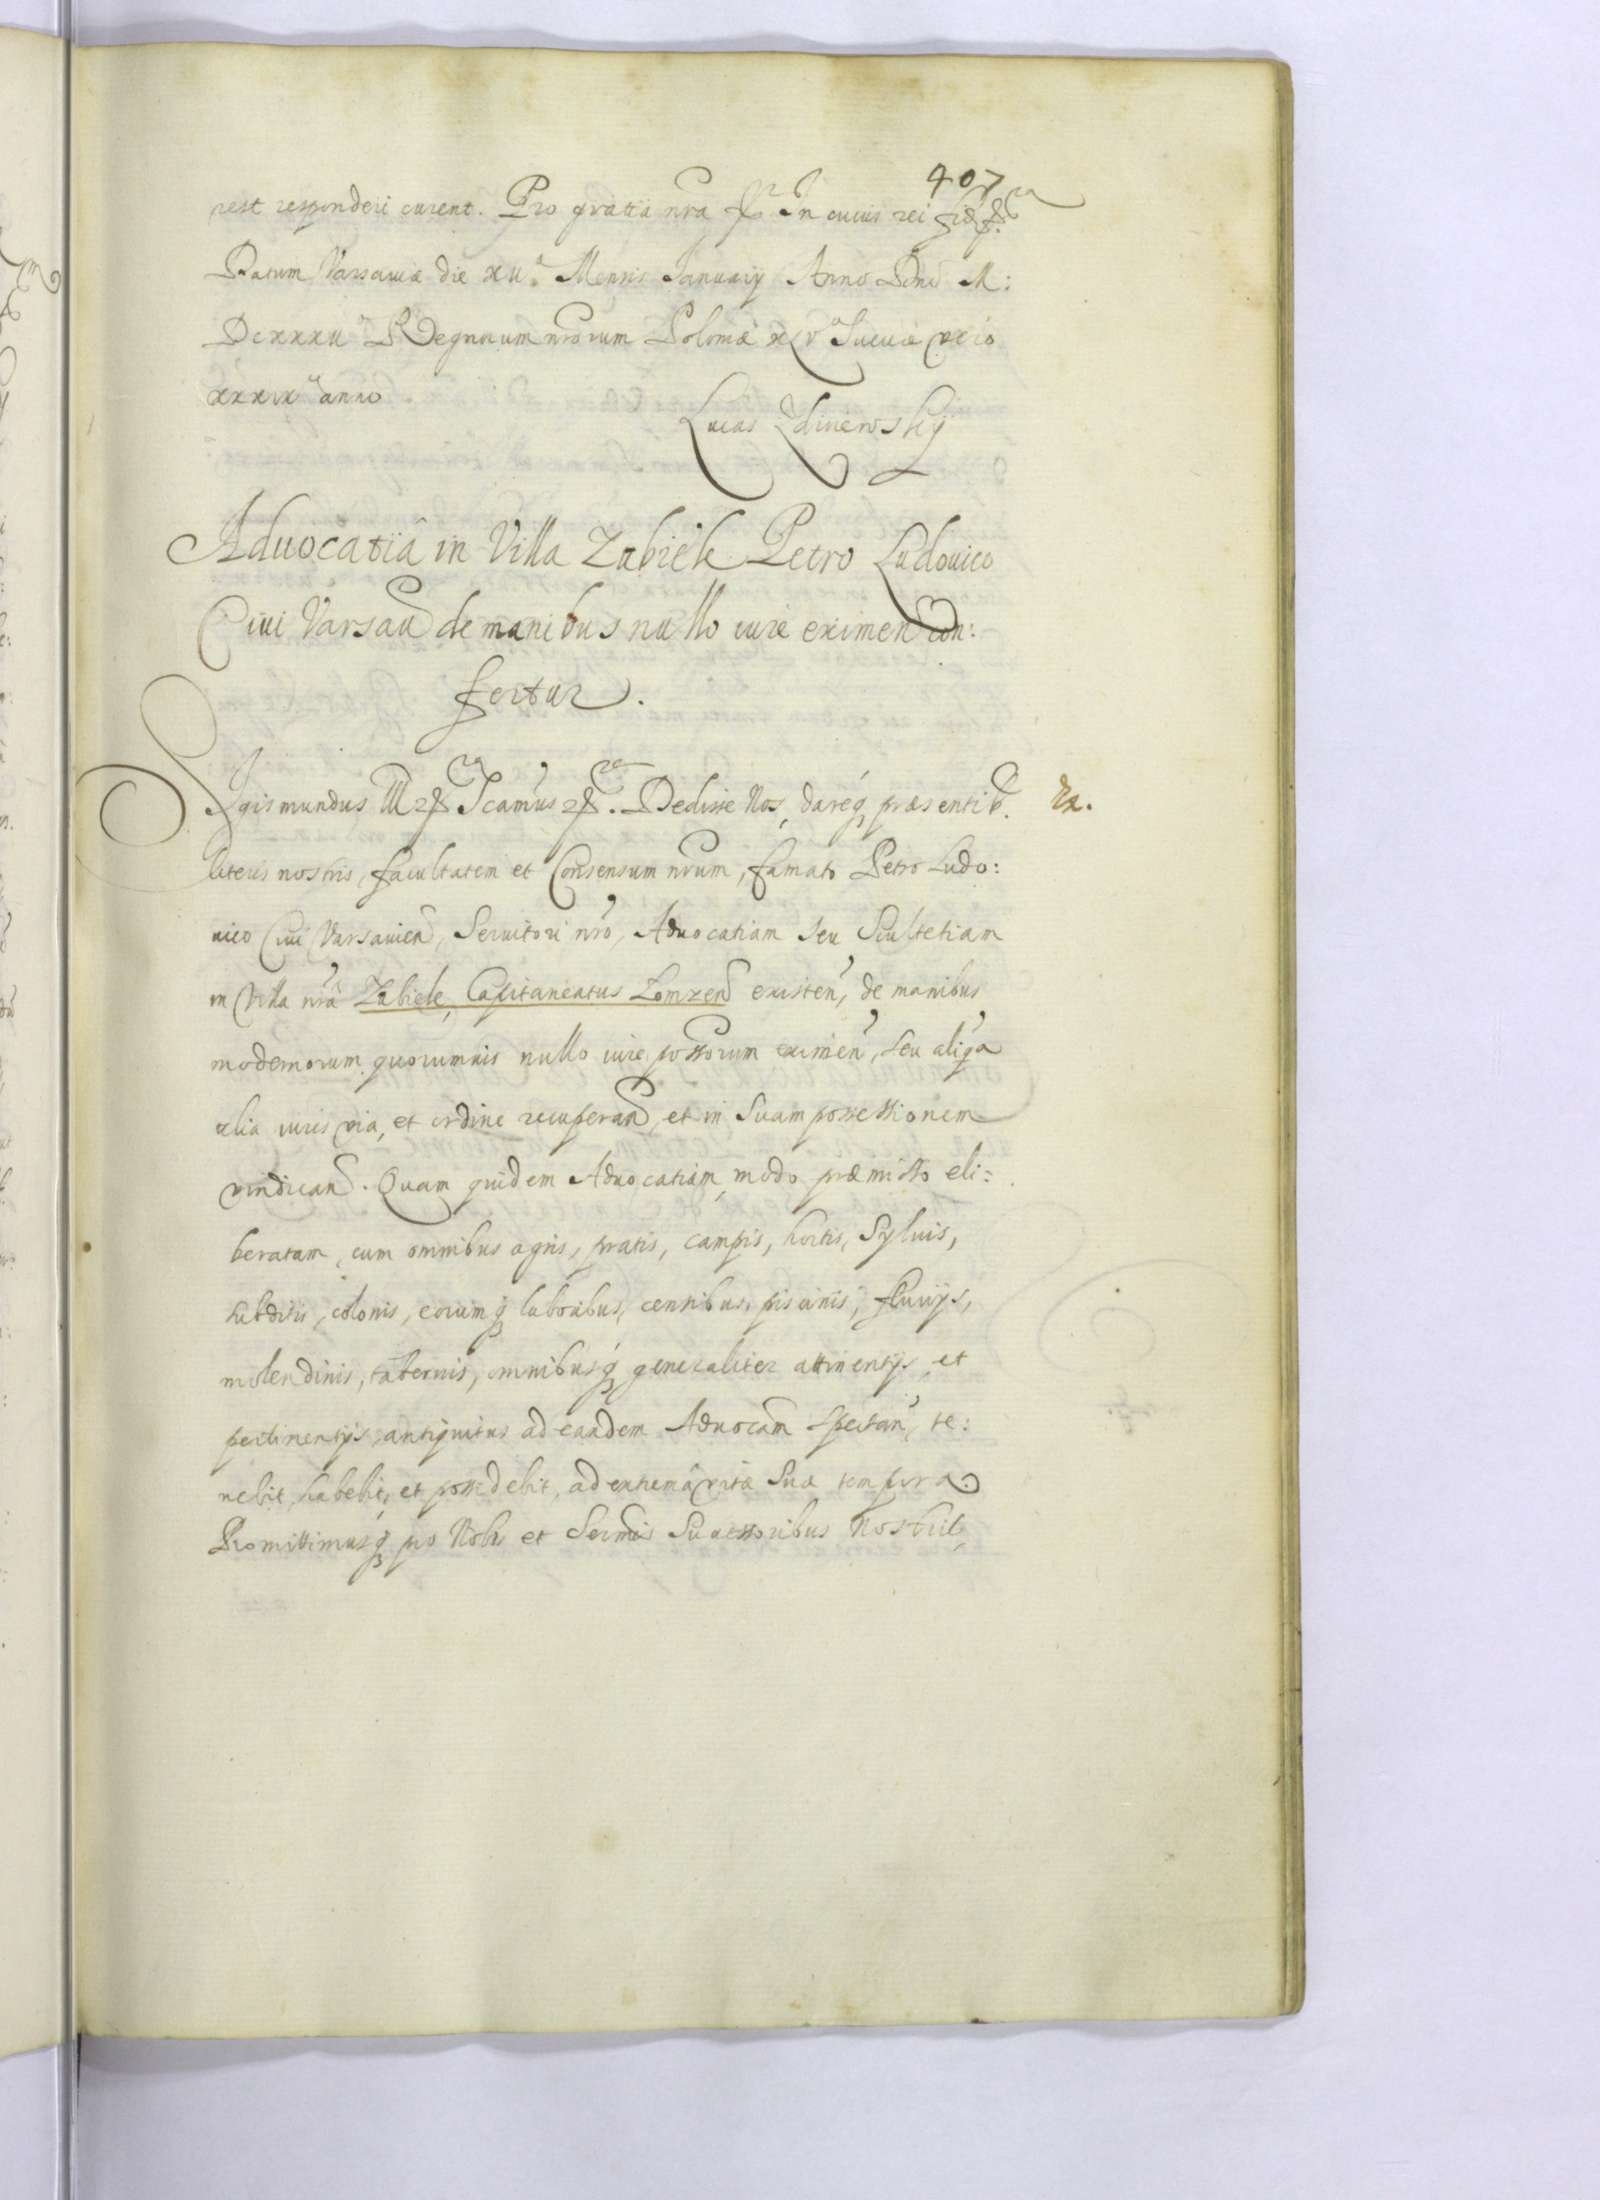 407
rest responderi curent. Pro gratia nra In cuius rei fid
Datum Varsauiæ die XII. Mensis January Anno Dni M:
DCXXXII Regnorum nrorum Poloniæ XLV Sueciæ vero
XXXIX anno
Lucas
Aduocatia in Villa Zabiele Petro Ludouico
Ciui Varsau de manibus nullo iure eximen con:
fertur.
Sigismundus III Dedisse Nos, dareq præsentib. Ex.
literis nostris, facultatem et Consensum nrum, famato Petro Ludo:
uico Ciui Varsauien, Seruitori nro, Aduocatiam seu Scultetiam
in Villa nra Zabiele, Capitaneatus Lomzen existen, de manibus
modernorum quorumuis nullo iure possorum eximen, seu aliqa
alia iuris via, et ordine recuperan, et in Suam possessionem
vindican. Quam quidem Aduocatiam, modo præmisso eli=
beratam, cum omnibus agris, pratis, campis, hortis, Syluis,
subditis, colonis, eorumq laboribus, censibus, piscinis, fluuijs,
molendinis, tabernis, omnibusq generaliter attinentijs, et
pertinentijs, antiquitus ad eandem Aduocam spectan, te:
nebit, habebit, et possidebit, ad extrema vitæ Suæ tempora.
Promittimusq pro Nobis et Sermis Successoribus Nostris,